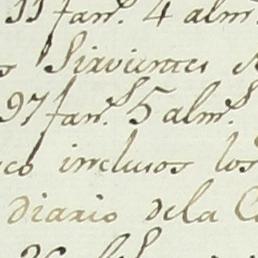 11 fan.s 4 alm.
s Sirvientes
97 fan.s 5 alm.s
co inclusos los
diario dela C